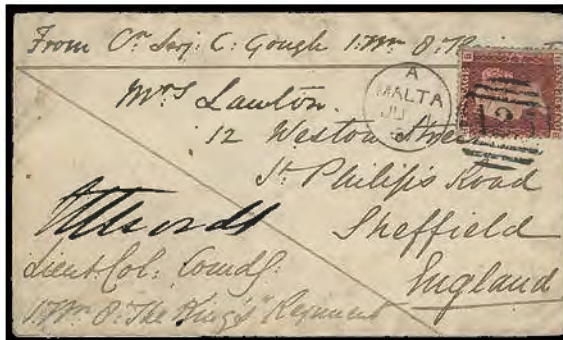 From Cr. Serj: C: Gough 1: Bn 8: 
A
MALTA
JU
Mrs Lawton.
12 Weston Street
St. Philip's Road
Sheffield
England
Lieut. Col: Comdg:
1: Bn 8: "The King's" Regiment